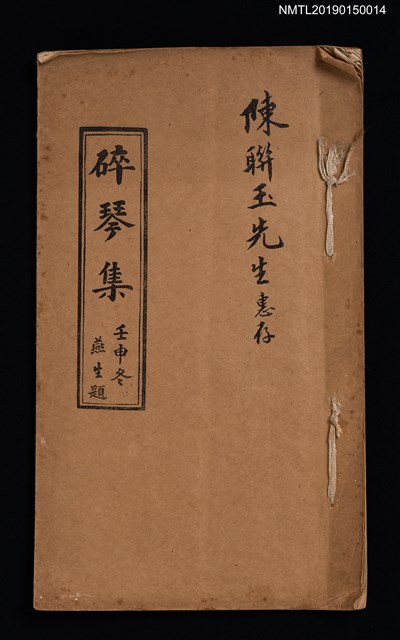 NMTL20190150014
陳聯玉先生惠存
碎琴集
壬申冬
燕生題